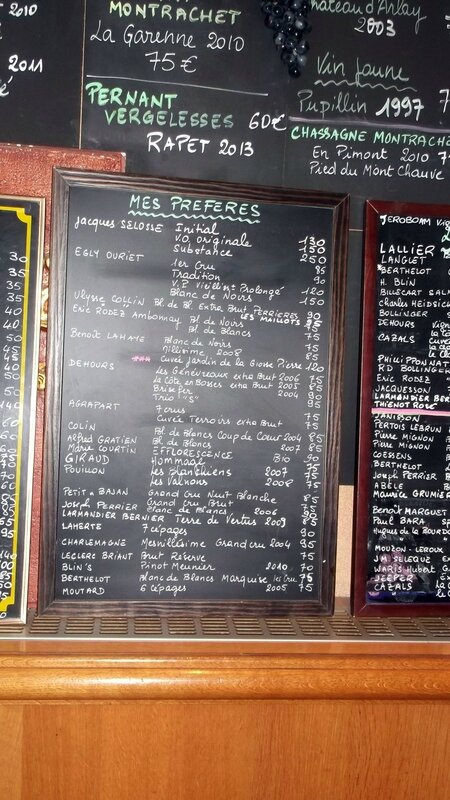 2010
2011
MONTRACHET
La Garenne 2010
75 €
PERNANT
VERGELESSES 60€
RAPET 2013
Château d'Arlay
2003
Vin Jaune
Pupillin 1997
CHASSAGNE MONTRACHE
En Pimont 2010
Pied du Mont Chauve
MES PREFERES
Jacques SELOSSE Initial 130
V.O. Originale 150
Substance 250
EGLY OURIET 1er Cru 85
Tradition 90
V.P vieillist Prolongé 120
Blanc de Noirs 150
Ulysse COLLIN Bl. de Bl. Extra Brut PERRIERES 90
LES MAILLOTS 95
Eric RODEZ Ambonnay Bl. de Noirs 75
Bl. de Blancs 75
Benoît LAHAYE Blanc de Noirs 75
Millésime 2008 85
Cuvée Jardin de la Grosse Pierre 120
DEHOURS Les Genevraux extra Brut 2006 75
La Côte en Bosses extra Brut 2005 85
Brisefer 2004 90
Trio "S" 90
AGRAPART 7 crus 75
Cuvée Terroirs extra Brut 75
COLIN Bl. de Blancs Coup de Cœur 2004 85
Alfred GRATIEN Bl. de Blancs 2007 85
Marie COURTIN EFFLORESCENCE Bio 90
GIRAUD Hommage 75
POUILLON Les Blanchiens 2007 75
Les Valnons 2008 75
PETIT & BAJAN Grand Cru Nuit Blanche 85
Joseph PERRIER Grand Cru Brut 75
Blanc de Blancs 2006 95
LARMANDIER BERNIER Terre de Vertus 2009 85
LAHERTE 7 cépages 90
CHARLEMAGNE Mesnillésime Grand cru 2004 95
LECLERC BRIANT Brut Réserve 75
BLIN'S Pinot Meunier 2010 70
BERTHELOT Blanc de Blancs Marquise 1er Cru 75
MOUTARD 6 Cépages 2005 75
JEROBOAM
LALLIER
LANGLET
BERTHELOT
H. BLIN
BILLECART SALM
Charles HEIDSICK
BOLLINGER
DEHOURS
CAZALS
PHILIPPONNAT
RD BOLLINGER
Eric RODEZ
JACQUESSON
LARMANDIER BER
THIENOT ROSÉ
JANISSON
PERTOIS LEBRUN
Pierre MIGNON
Pierre MIGNON
GOESSENS
BERTHELOT
Joseph PERRIER
ABELE
Maurice GRUMIER
Benoît MARGUET
Paul BARA
Hugues de la Bourdo
MOUZON - LEROUX
JM SELEQUE
WARIS Hubert
JEEPER
CAZALS